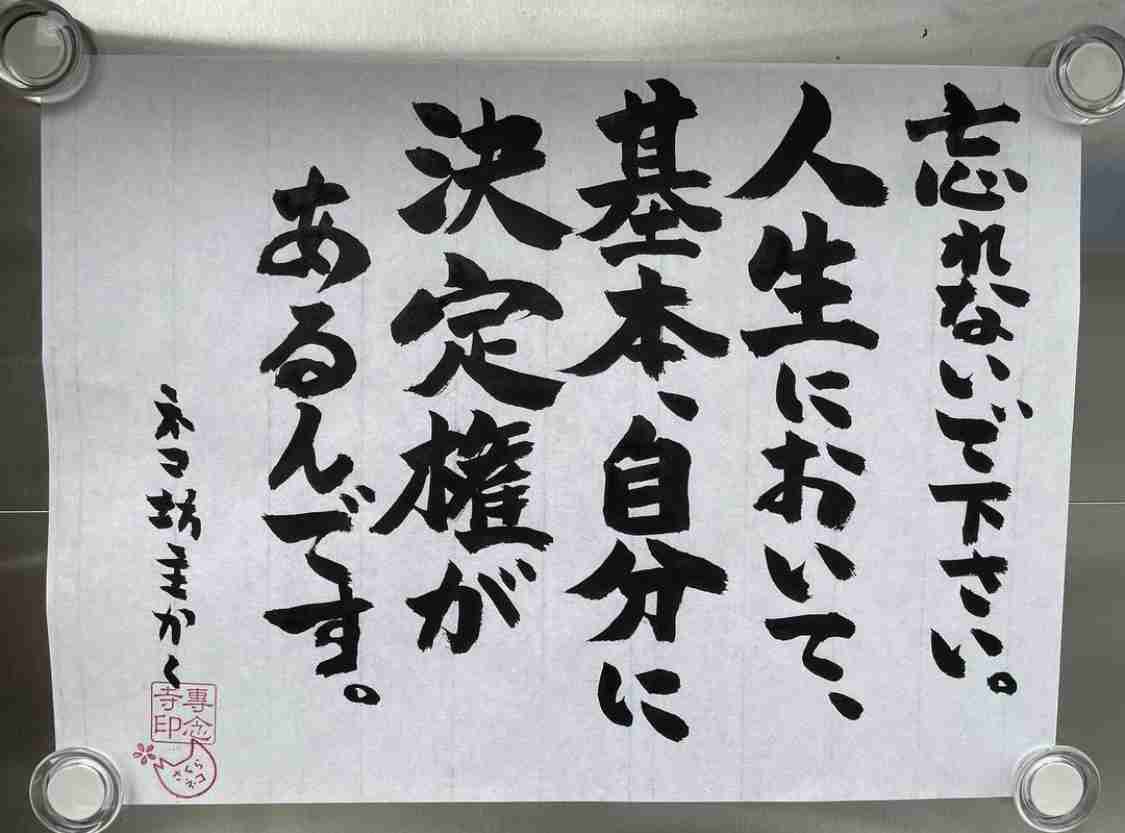 忘れないで下さい。
人生において、
基本、自分に
決定権が
あるんです。
ネコ坊主かく
專念
寺印